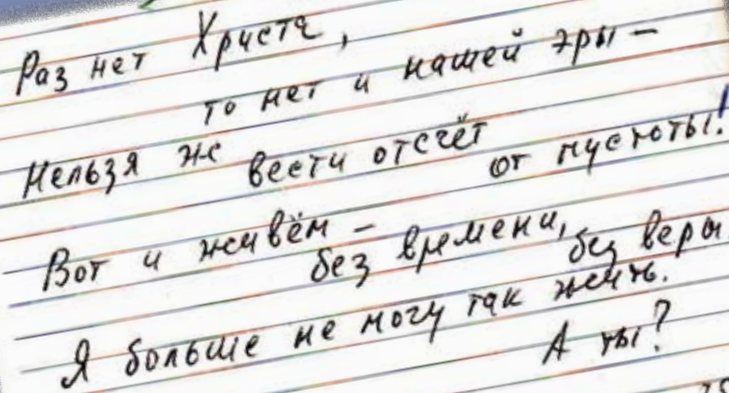 Раз нет Христа,
то нет и нашей эры –
Нельзя же вести отсчёт
от пустоты!
Вот и живём –
без времени,
без веры
Я больше не могу так жить.
А ты?